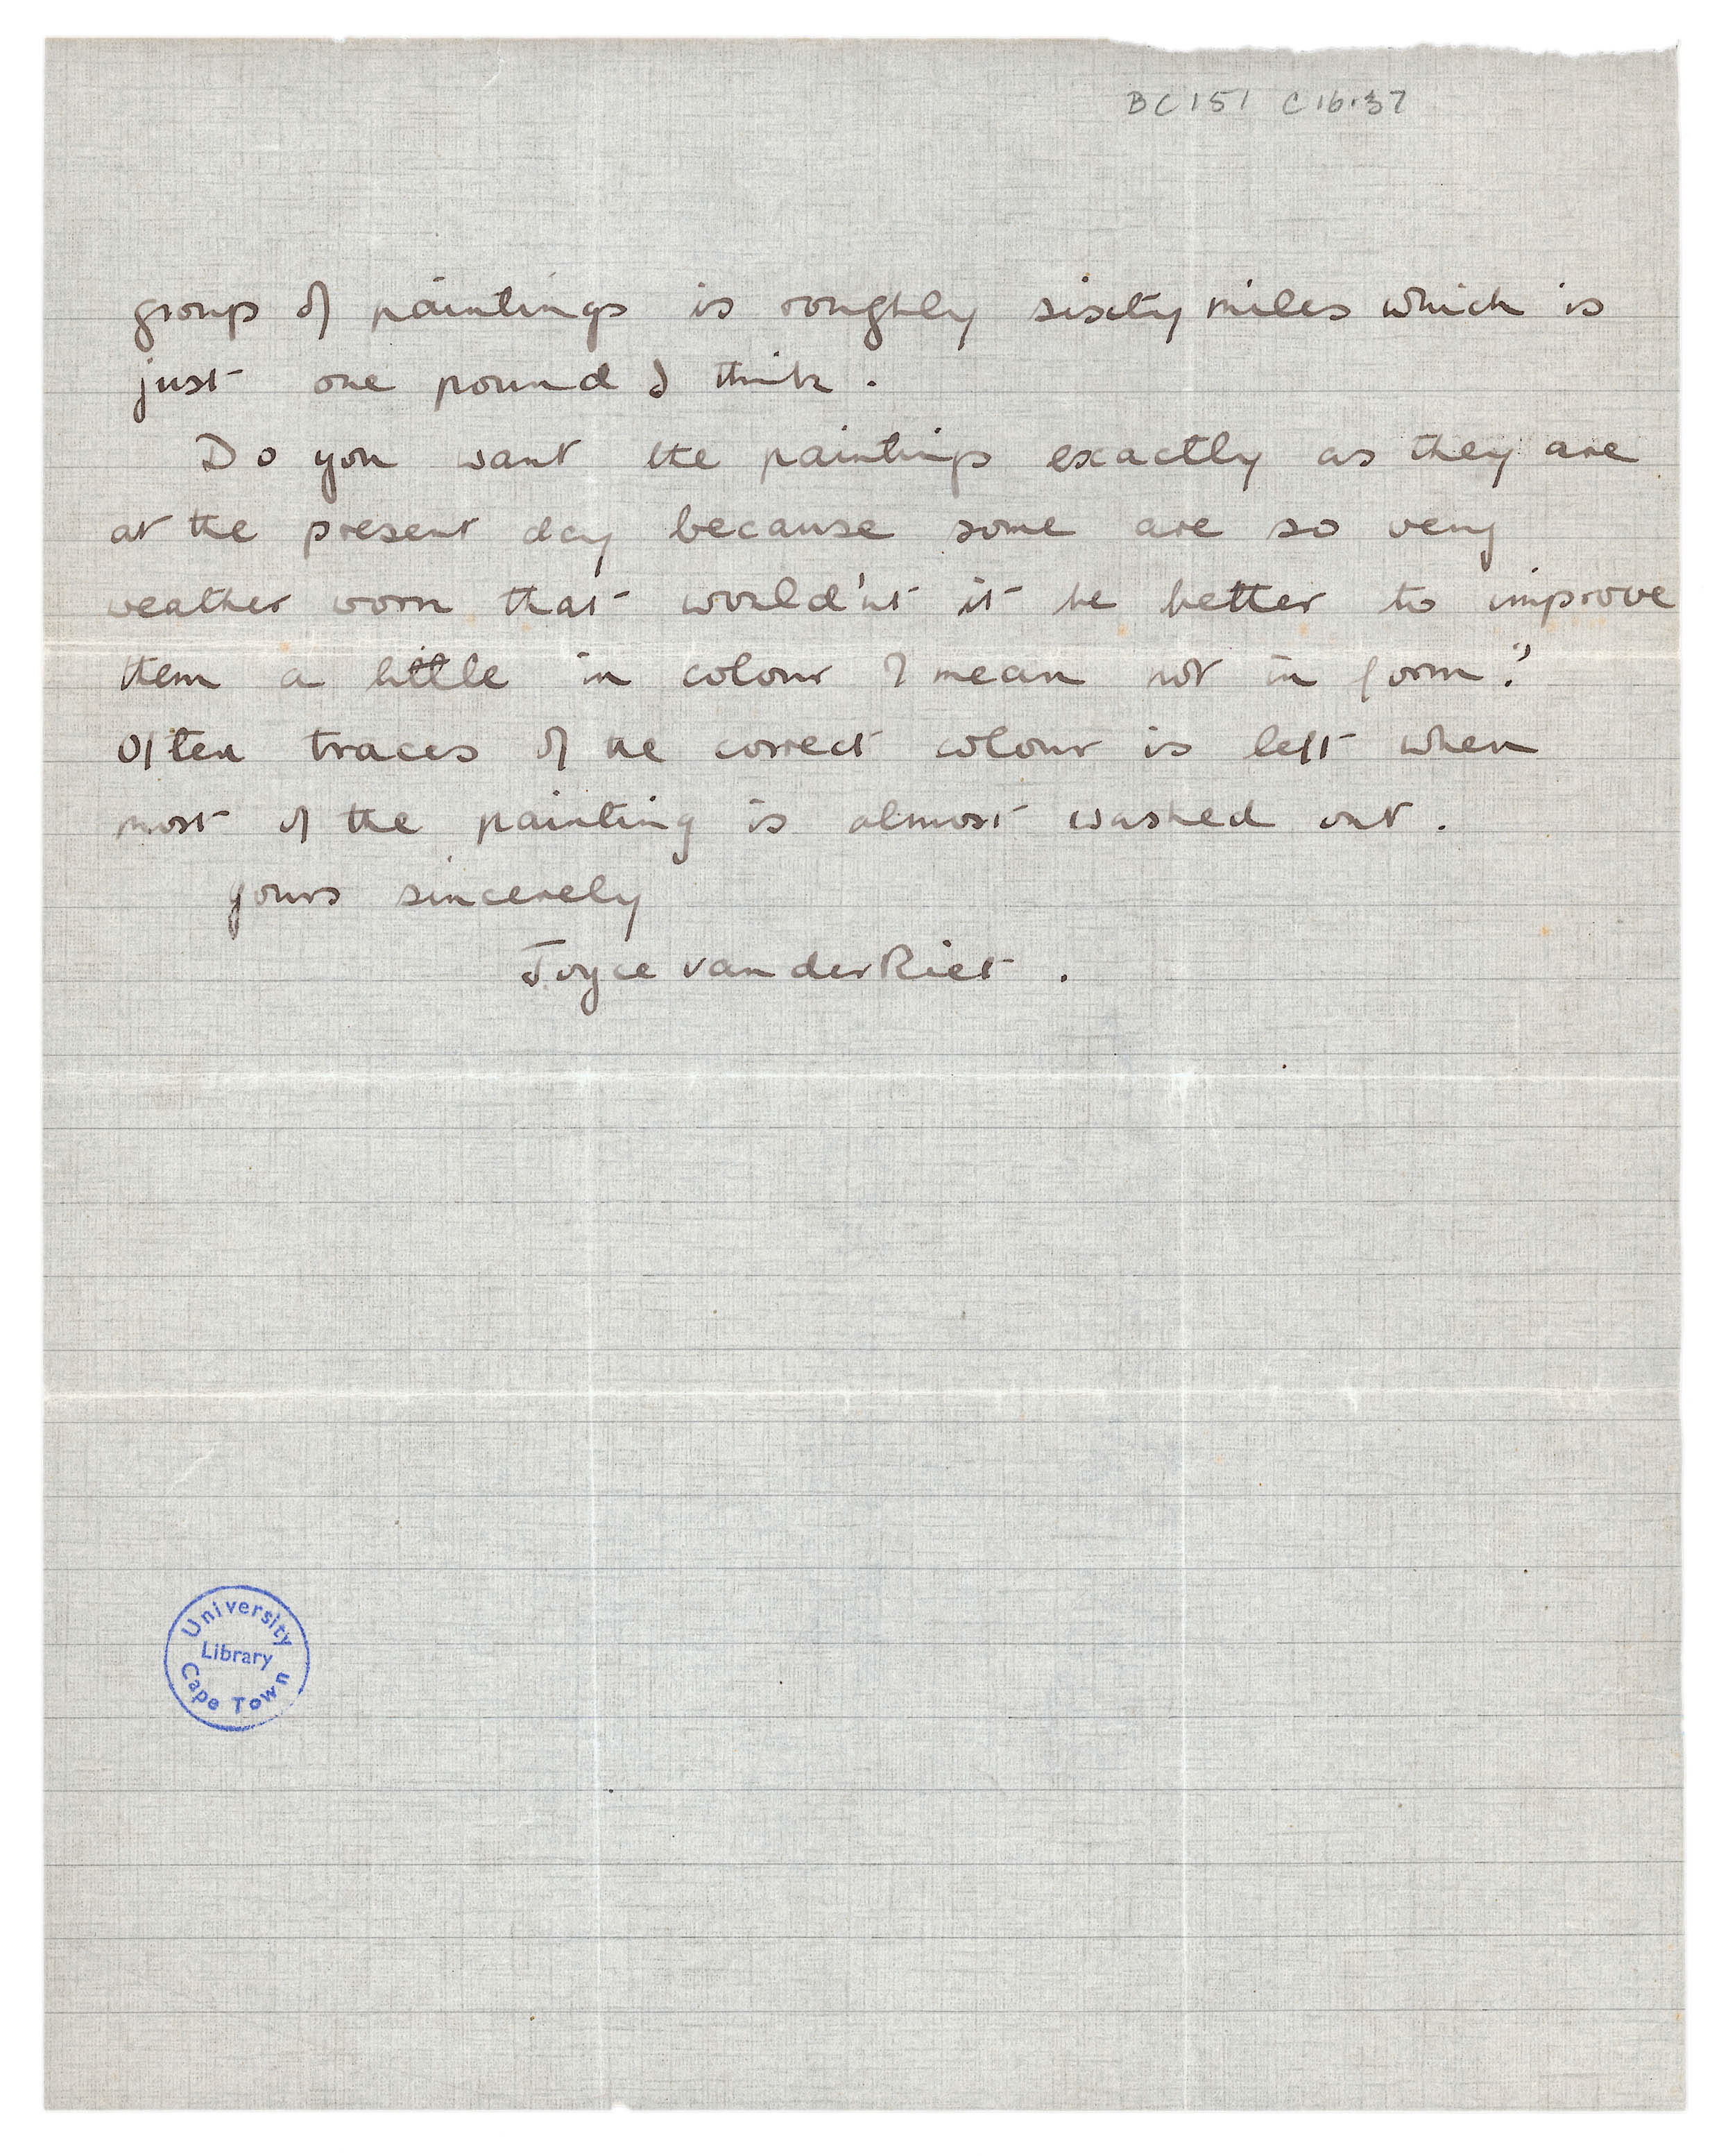 BC151 C16.37
group of paintings is roughly sixty miles which is
just one pound I think.
Do you want the paintings exactly as they are
at the present day because some are so very
weather worn that would'nt it be better to improve
them a little in colour I mean not in form?
Often traces of the correct colour is left when
most of the painting is almost washed out.
yours sincerely
Joyce van der Riet.
University
Library
Cape Town